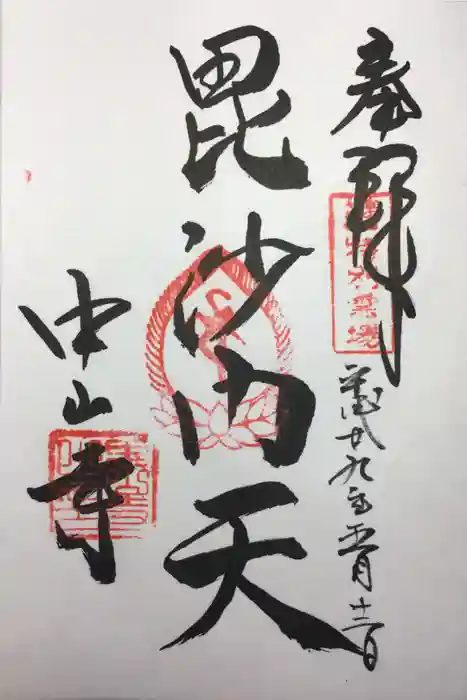 奉拝
平成廿九年五月十二日
毘沙門天
中山寺